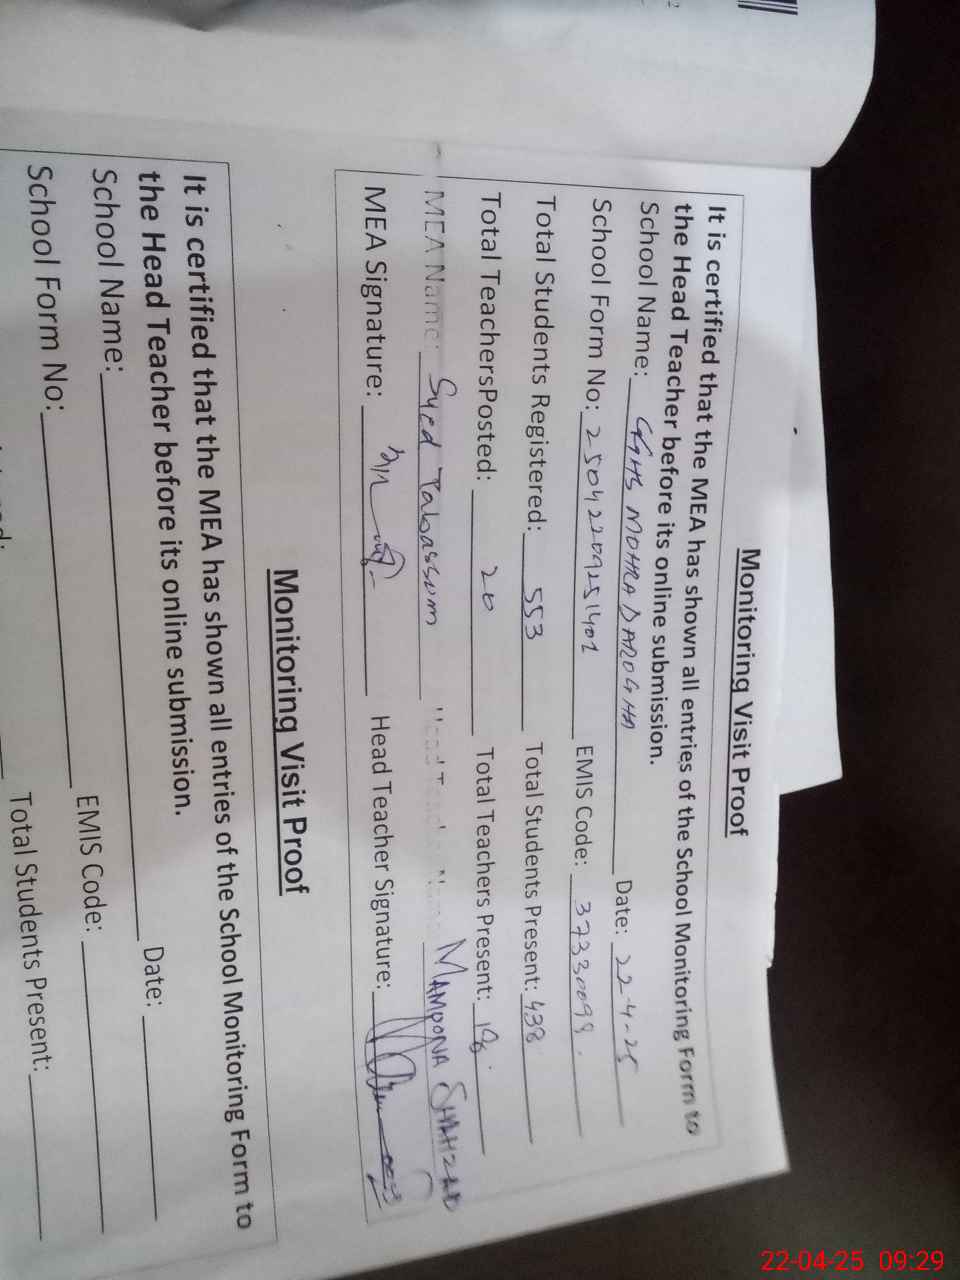 Monitoring Visit Proof
It is certified that the MEA has shown all entries of the School Monitoring Form to
the Head Teacher before its online submission.
School Name: GGHS MOHRA DAROGHA Date: 22-4-25
School Form No: EMIS Code: 37330099
Total Students Registered: 553 Total Students Present: 438
Total TeachersPosted: 20 Total Teachers Present:
MEA Name: Syed Tabassum Head Teacher Name: MAMOONA SHAHZAD
MEA Signature: Head Teacher Signature:
Monitoring Visit Proof
It is certified that the MEA has shown all entries of the School Monitoring Form to
the Head Teacher before its online submission.
School Name: Date:
School Form No: EMIS Code:
Total Students Present:
22-04-25 09:29